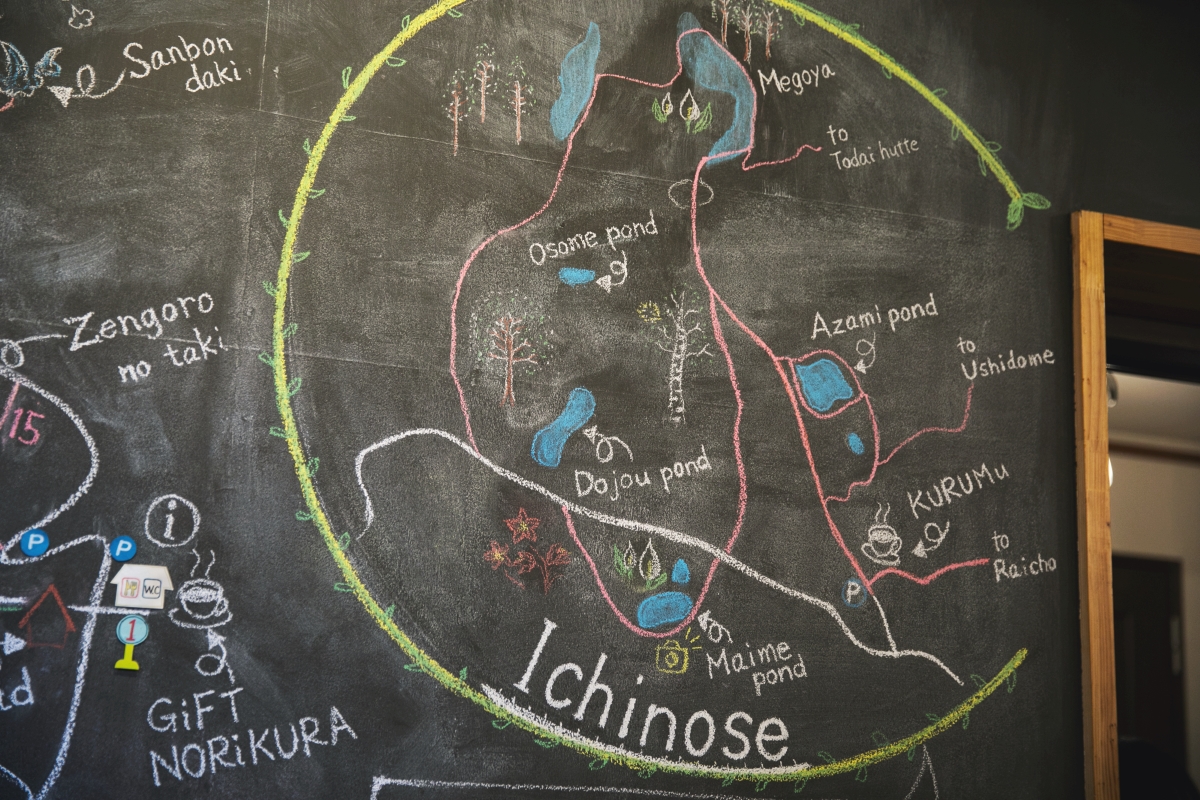 Sanbon
daki
Megoya
to
Todai hutte
Osome pond
Zengoro
no taki
Azami pond
to
Ushidome
15
Dojou pond
KURUMU
i
P
P
WC
1
to
Raicho
P
Maime
pond
Ichinose
GiFT
NORiKURA